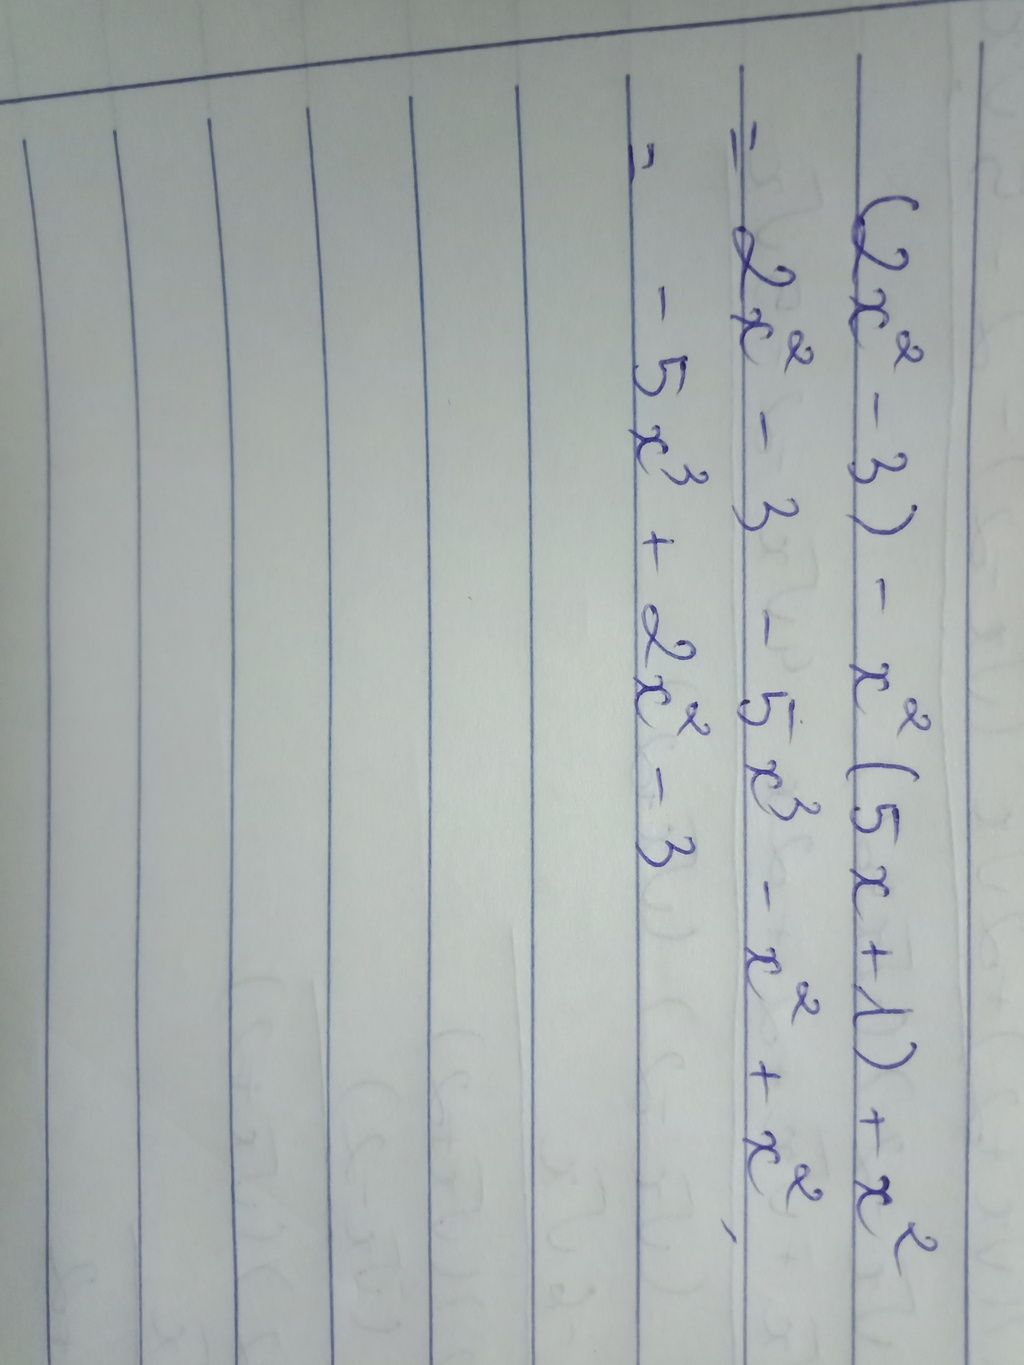 (2x² - 3) - x² (5x + 1) + x²
= 2x² - 3 - 5x³ - x² + x²
= - 5x³ + 2x² - 3